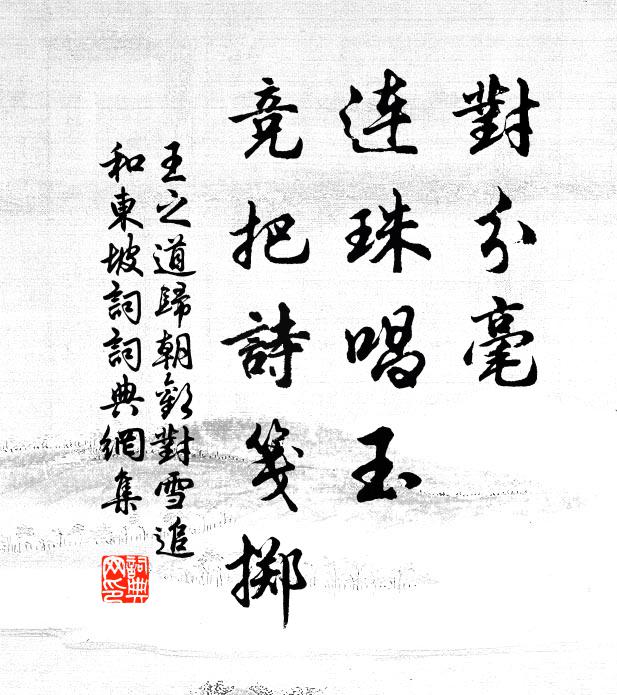 對分毫
連珠唱玉
竞把詩箋擲
王之道歸朝歡對雪追
和東坡詞詞典網集
詞典网印